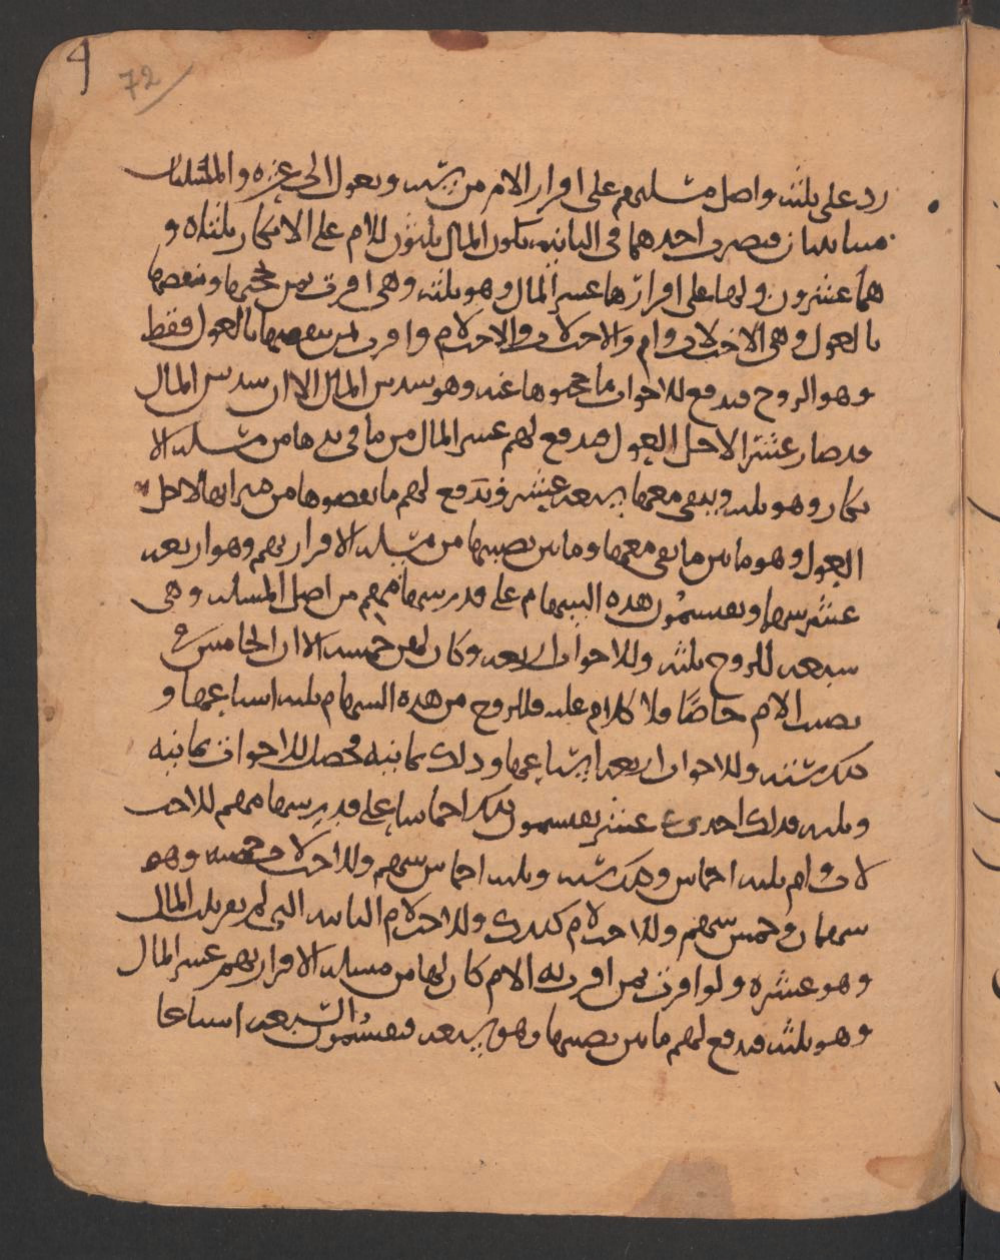 72
رد على ثلثه واصل مسلتهم على اقرار الام من ستة وتعول الى عشره والمسلتان
متباينتان فتضرب احدهما في الثانيه يكون المال ثلثون للام على الانكار ثلثاه و
هما عشرون ولها على اقرارها عشر المال وهو ثلثه وهي اقرت بمن تحجبها وتنقصها
بالعول وهي الاخت لاب وام والاخت لاب والاخت لام واقرت بمن ينقصها بالعول فقط
وهو الزوج فتدفع للاخوات ما حجبوها عنه وهو سدس المال الا ان سدس المال
قد صار عشرا لاجل العول فتدفع لهم عشر المال من ما في يدها من مسلة الا
نكار وهو ثلثه ويبقى معها سبعة عشر وتدفع لهم ما نقصوها من ميراثها لاجل
العول وهو ما بين ما بقي معها وما بين نصيبها من مسلة الاقرار بهم وهو اربعة
عشر سهما ويقسمون هذه السهام على قدر سهامهم من اصل المسلة وهي
سبعة للزوج ثلثه وللاخوات اربعه وكان لهن خمسه الا ان الخامس
نصيب الام خاصا فلا كلام عليه فللزوج من هذه السهام ثلثه اسباعها و
ذلك ستة وللاخوات اربعة اسباعها وذلك ثمانيه فحصل للاخوات ثمانيه
وثلثه فذلك احدى عشر يقسمون ذلك اخماسا على قدر سهامهم للاخت
لاب وام ثلثه اخماس وذلك سته وثلثه اخماس سهم وللاخت لاب خمسه وهو
سهمان وخمس سهم وللاخت لام كذلك وللاخت لام الثانيه التي لم يقر بها ثلث المال
وهو عشره ولو اقرت بمن اقرت به الام كان لها من مسلة الاقرار بهم عشر المال
وهو ثلثه فتدفع لهم ما بين نصيبها وهو سبعه فيقسمون السبعه اسباعا